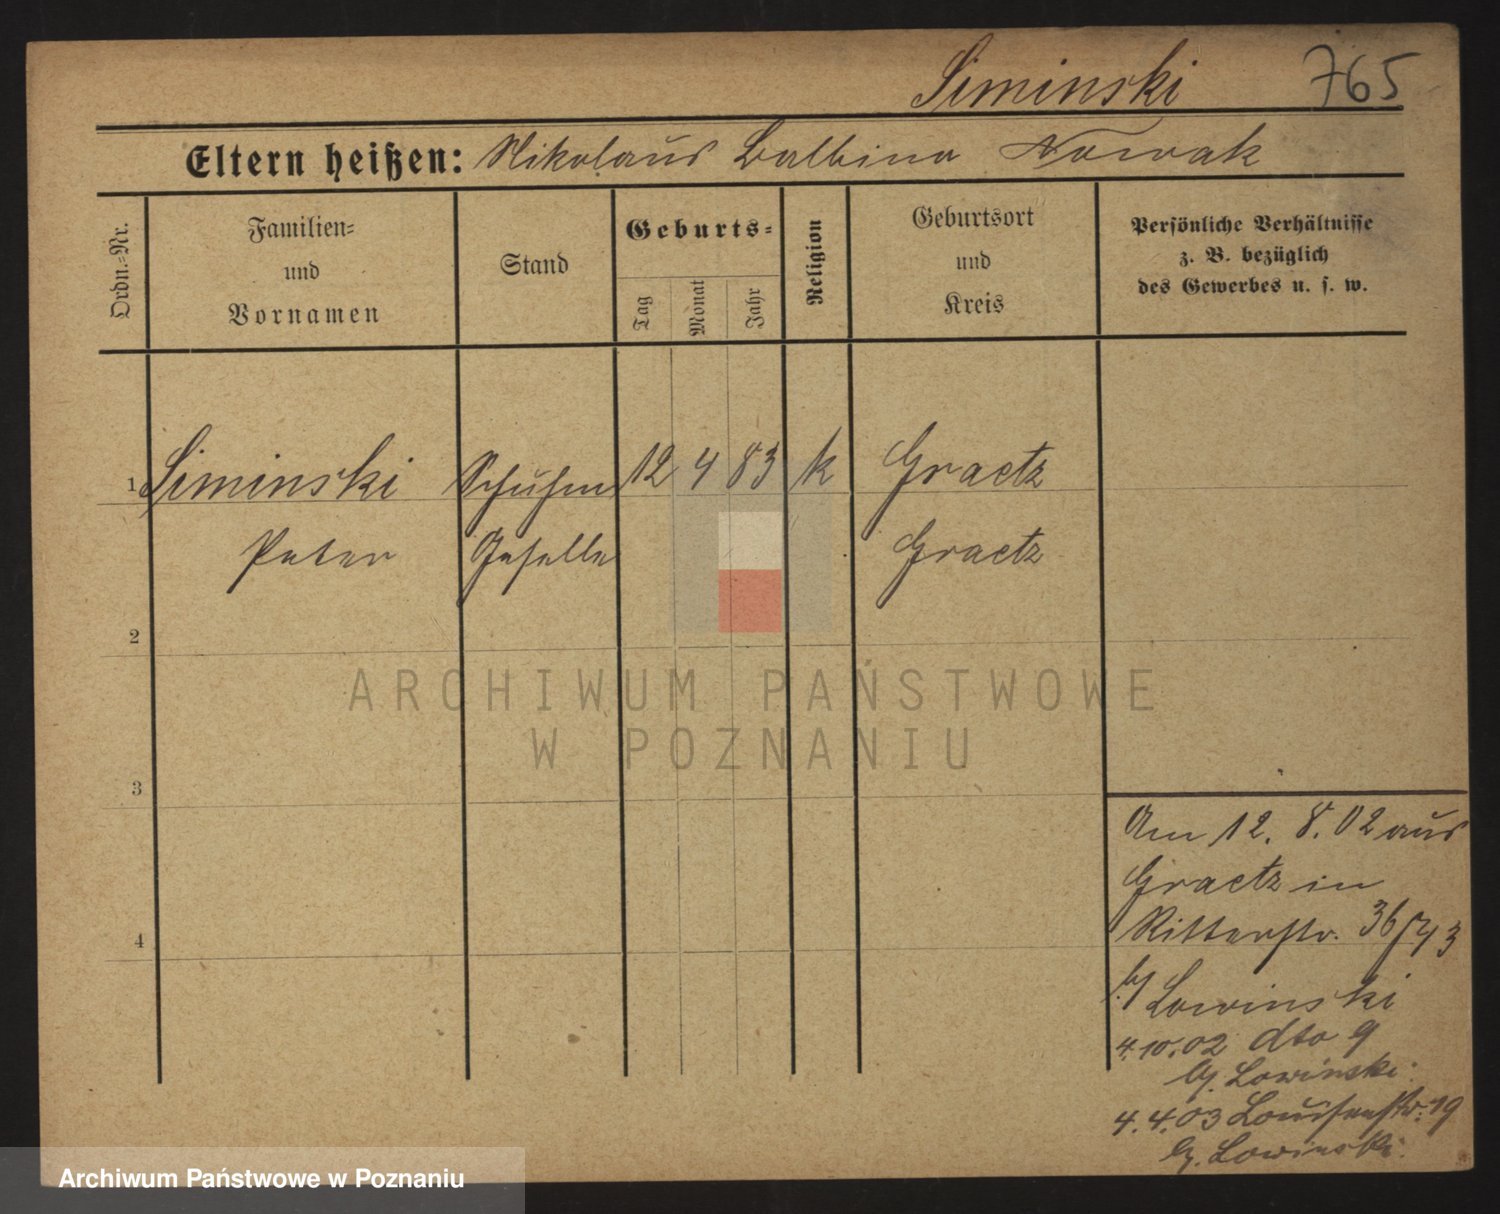 Siminski 765
Eltern heißen: Nikolaus Balbina Nowak
Ordn.-Nr.
Familien-
und
Vornamen
Stand
Geburts-
Tag
Monat
Jahr
Religion
Geburtsort
und
Kreis
Persönliche Verhältnisse
z. B. bezüglich
des Gewerbes u. s. w.
1 Siminski Schuhm 12 4 83 k Graetz
Peter Geselle Graetz
2
3
4
Am 12. 8. 02 aus
Graetz in
Ritterstr. 36/43
b/ Lowinski
4.10.02 dto 9
b/. Lowinski.
4.4.03 Louisenstr. 19
b/. Lowinski.
ARCHIWUM PAŃSTWOWE
W POZNANIU
Archiwum Państwowe w Poznaniu